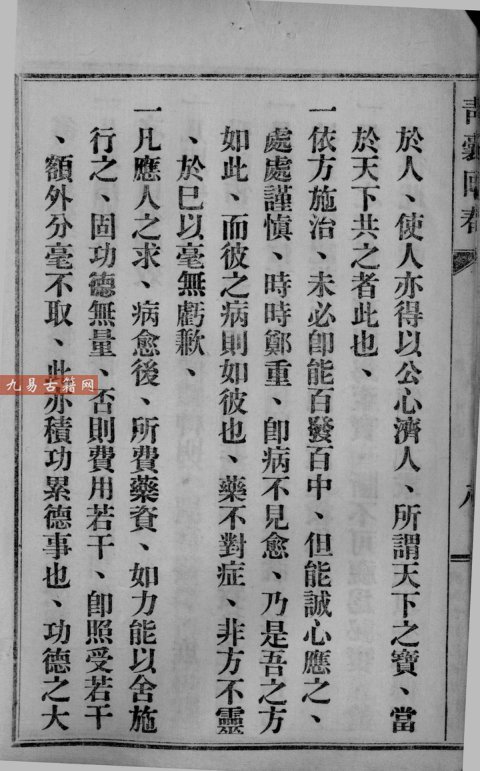 青囊回春
於人、使人亦得以公心濟人、所謂天下之寶、當
於天下共之者此也、
一依方施治、未必卽能百發百中、但能誠心應之、
處處謹慎、時時鄭重、卽病不見愈、乃是吾之方
如此、而彼之病則如彼也、藥不對症、非方不靈
、於巳以毫無虧歉、
一凡應人之求、病愈後、所費藥資、如力能以舍施
行之、固功德無量、否則費用若干、卽照受若干
、額外分毫不取、此亦積功累德事也、功德之大
九易古籍网